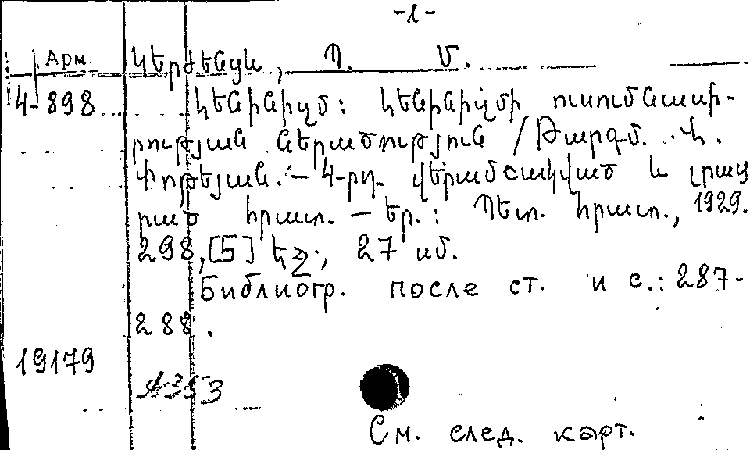 -1-
Арм
4-898
Կերժենցև, Պ. Մ.
Լենինիզմ: Լենինիզմի ուսումնասի-
րության ներածություն / Թարգմ. Վ.
Փոթեյան. - 4-րդ. վերամշակված և լրաց
րած հրատ. - Եր.: Պետ. հրատ., 1929.
298, [5] էջ., 27 սմ.
Библиогр. после ст. и с.: 287-
288.
19179
A353
См. след. карт.